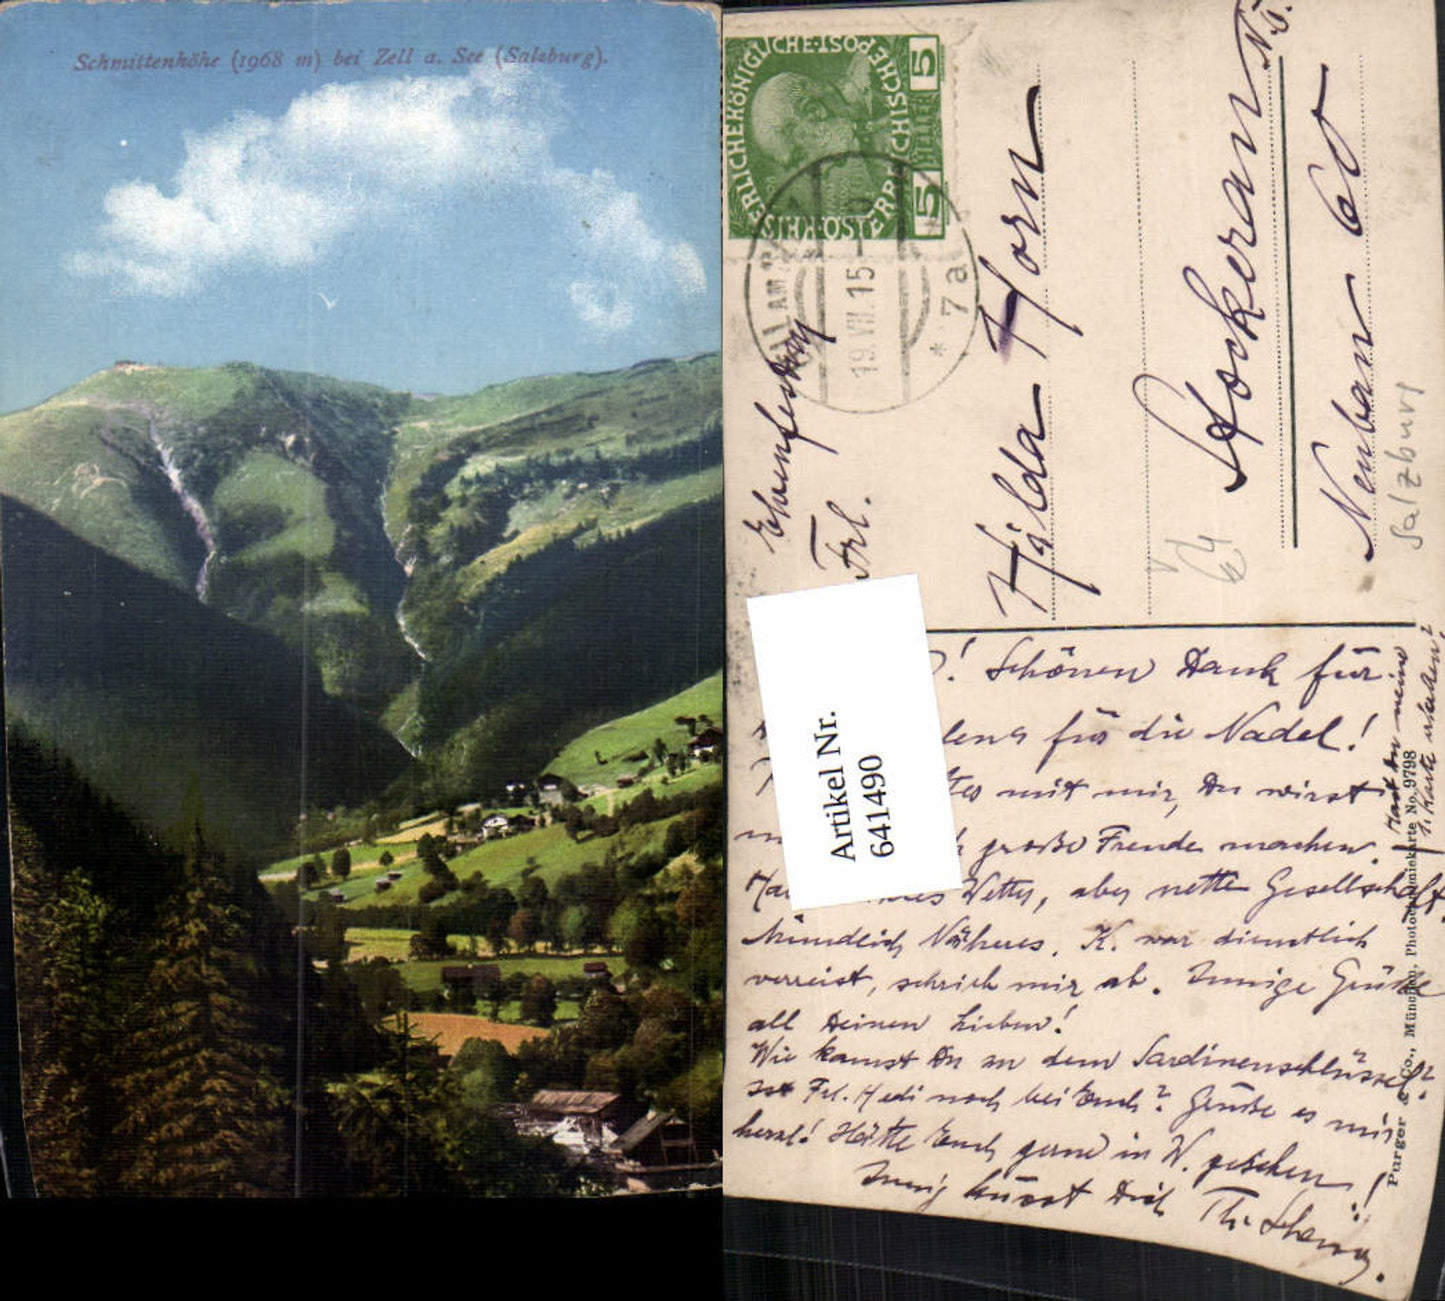 Schmittenhöhe (1968 m) bei Zell a. See (Salzburg).
KAISERLICHE KÖNIGLICHE ÖSTERREICHISCHE POST
5 HELLER 5
19.VII.15
* 7a
Frl.
Hilda Horn
Stockerau N.Ö.
Neubau 60
Salzburg
Artikel Nr.
641490
! Schönen Dank für
für die Nadel!
mit mir, Du wirst
große Freude machen.
Wetter, aber nette Gesellschaft.
Mündlich Näheres. K. war dienstlich
verreist, schrieb mir ab. Innige Grüße
all Deinen Lieben!
Wie kamst Du zu dem Sardinenschlüssel?
Ist Frl. Hedi noch bei Euch? Grüße es mir
herzl! Hätte Euch gerne in W. gesehen!
Innig küsst Dich Th.
Hast Du meine
1. Karte erhalten?
Purger & Co., München, Photochromiekarte No. 9798